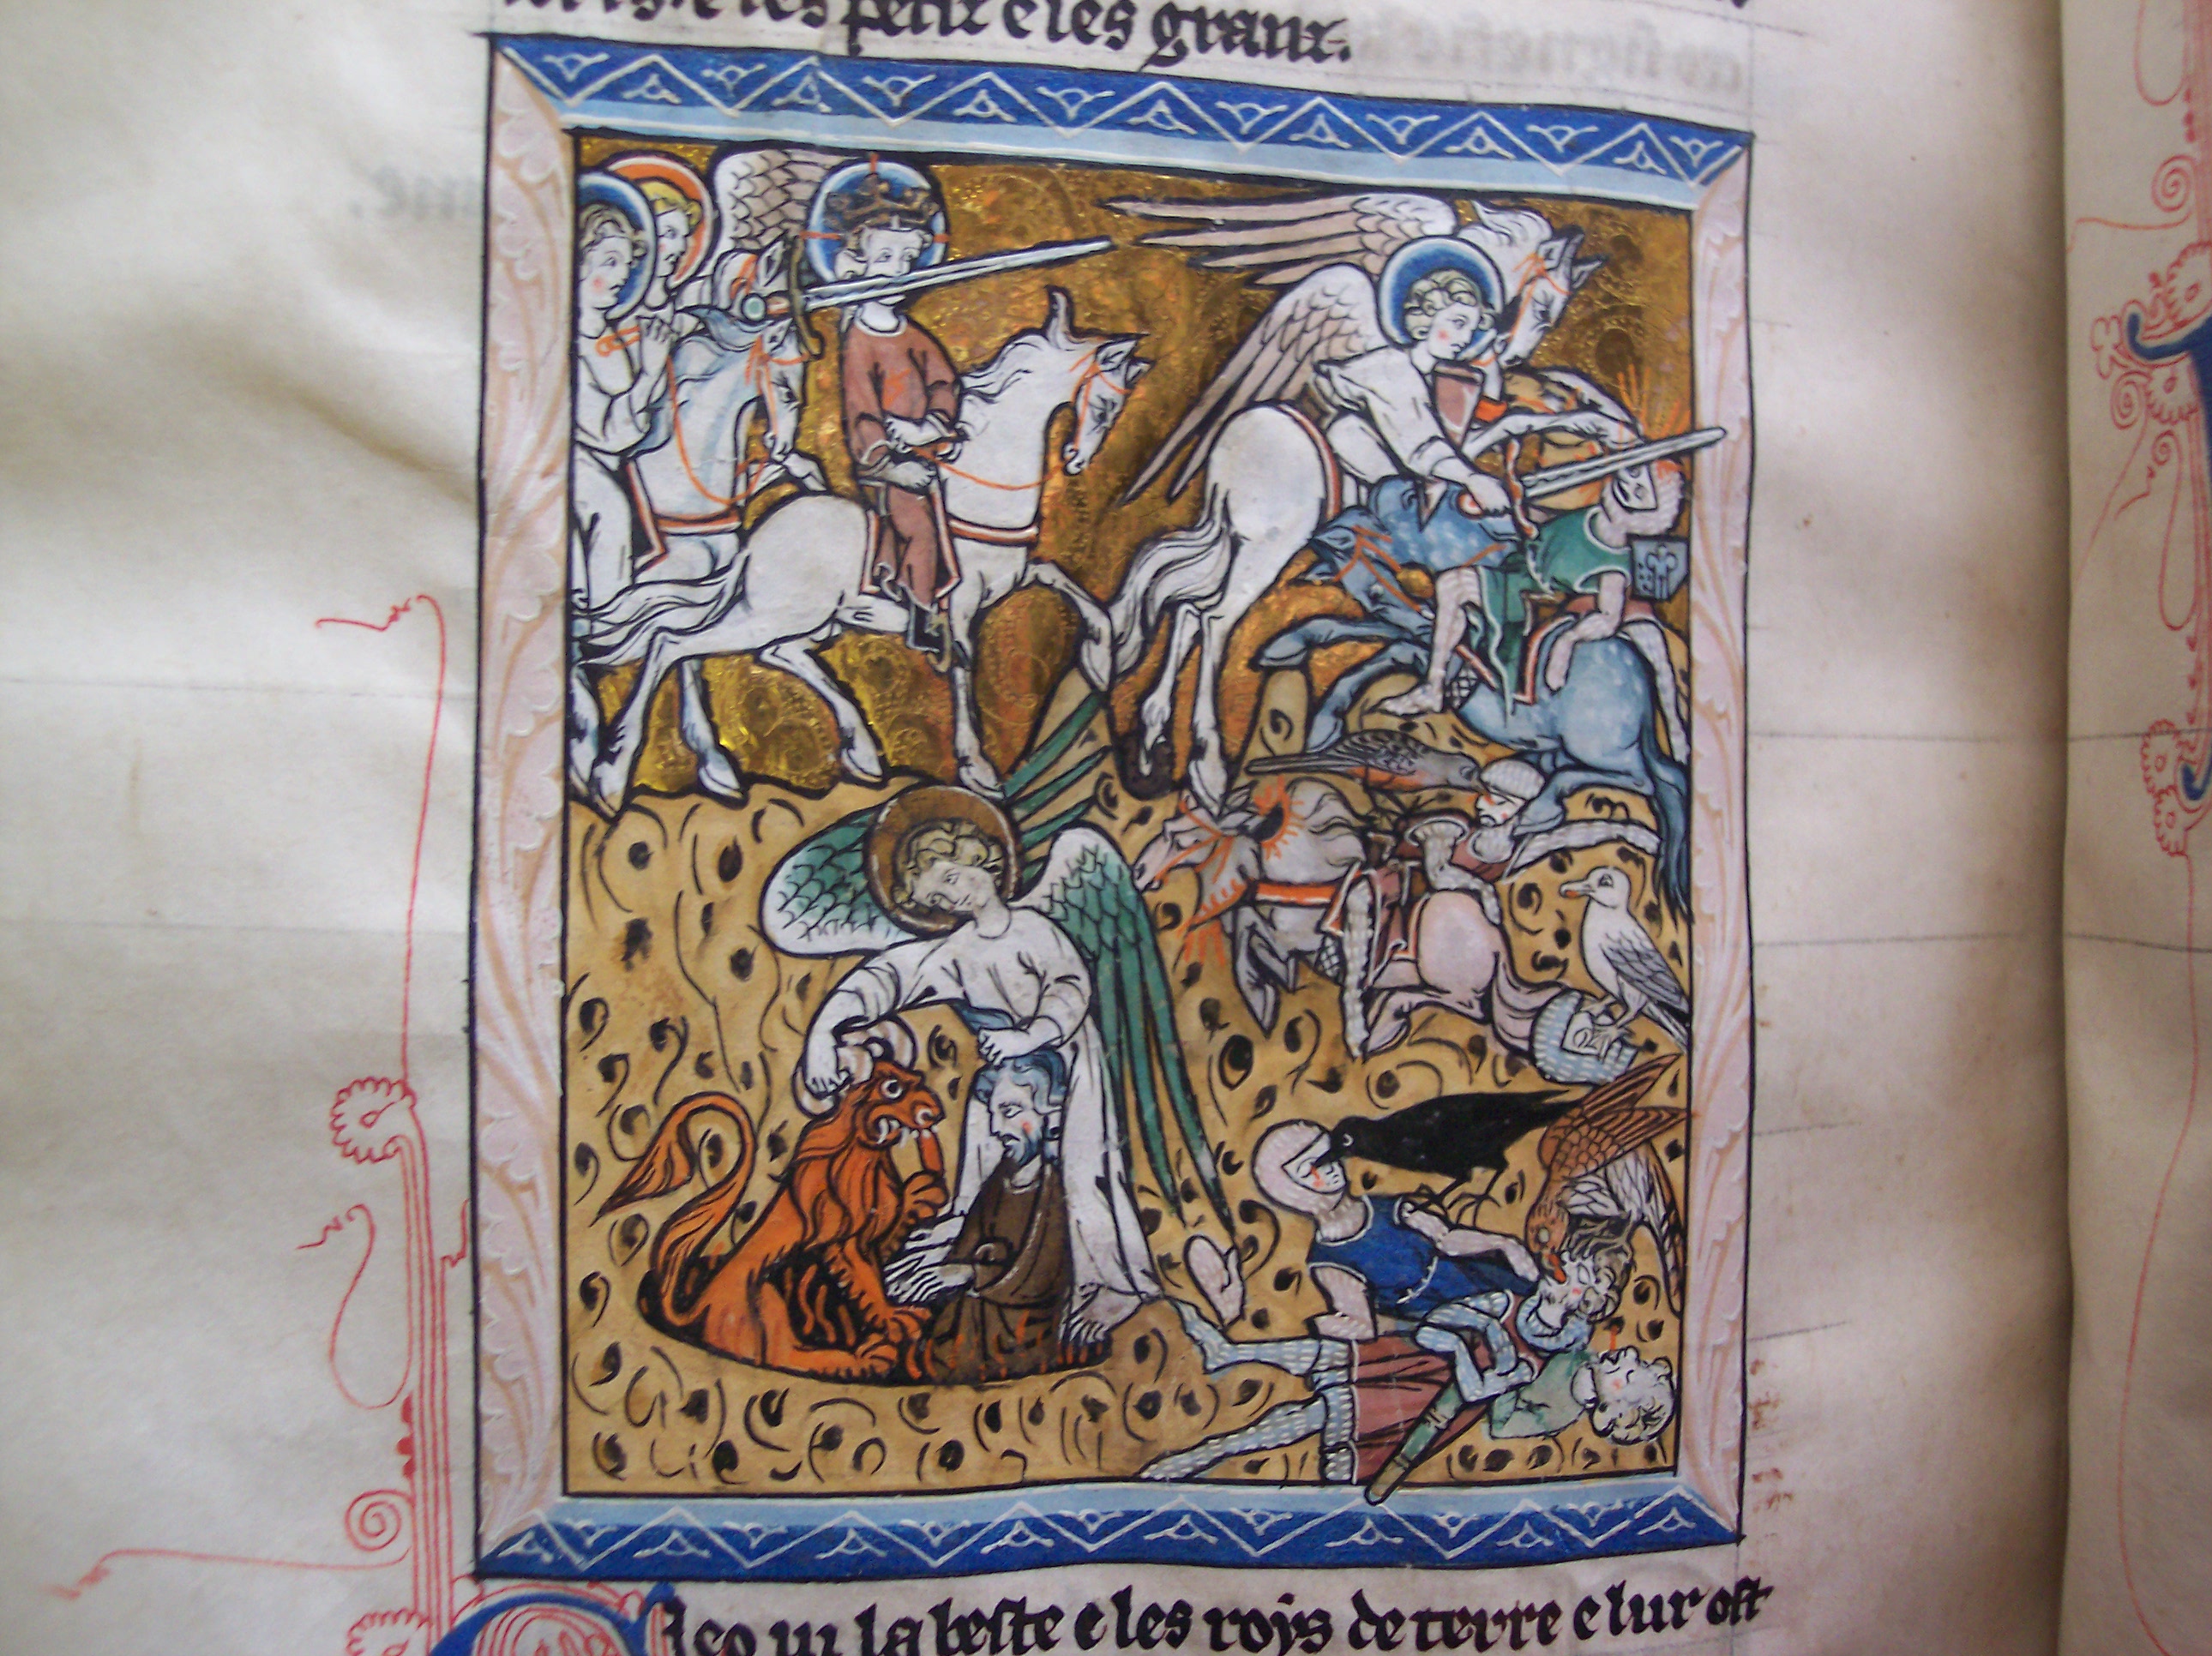 e les petiz e les granz.
E ieo vi la beste e les roys de terre e lur ost